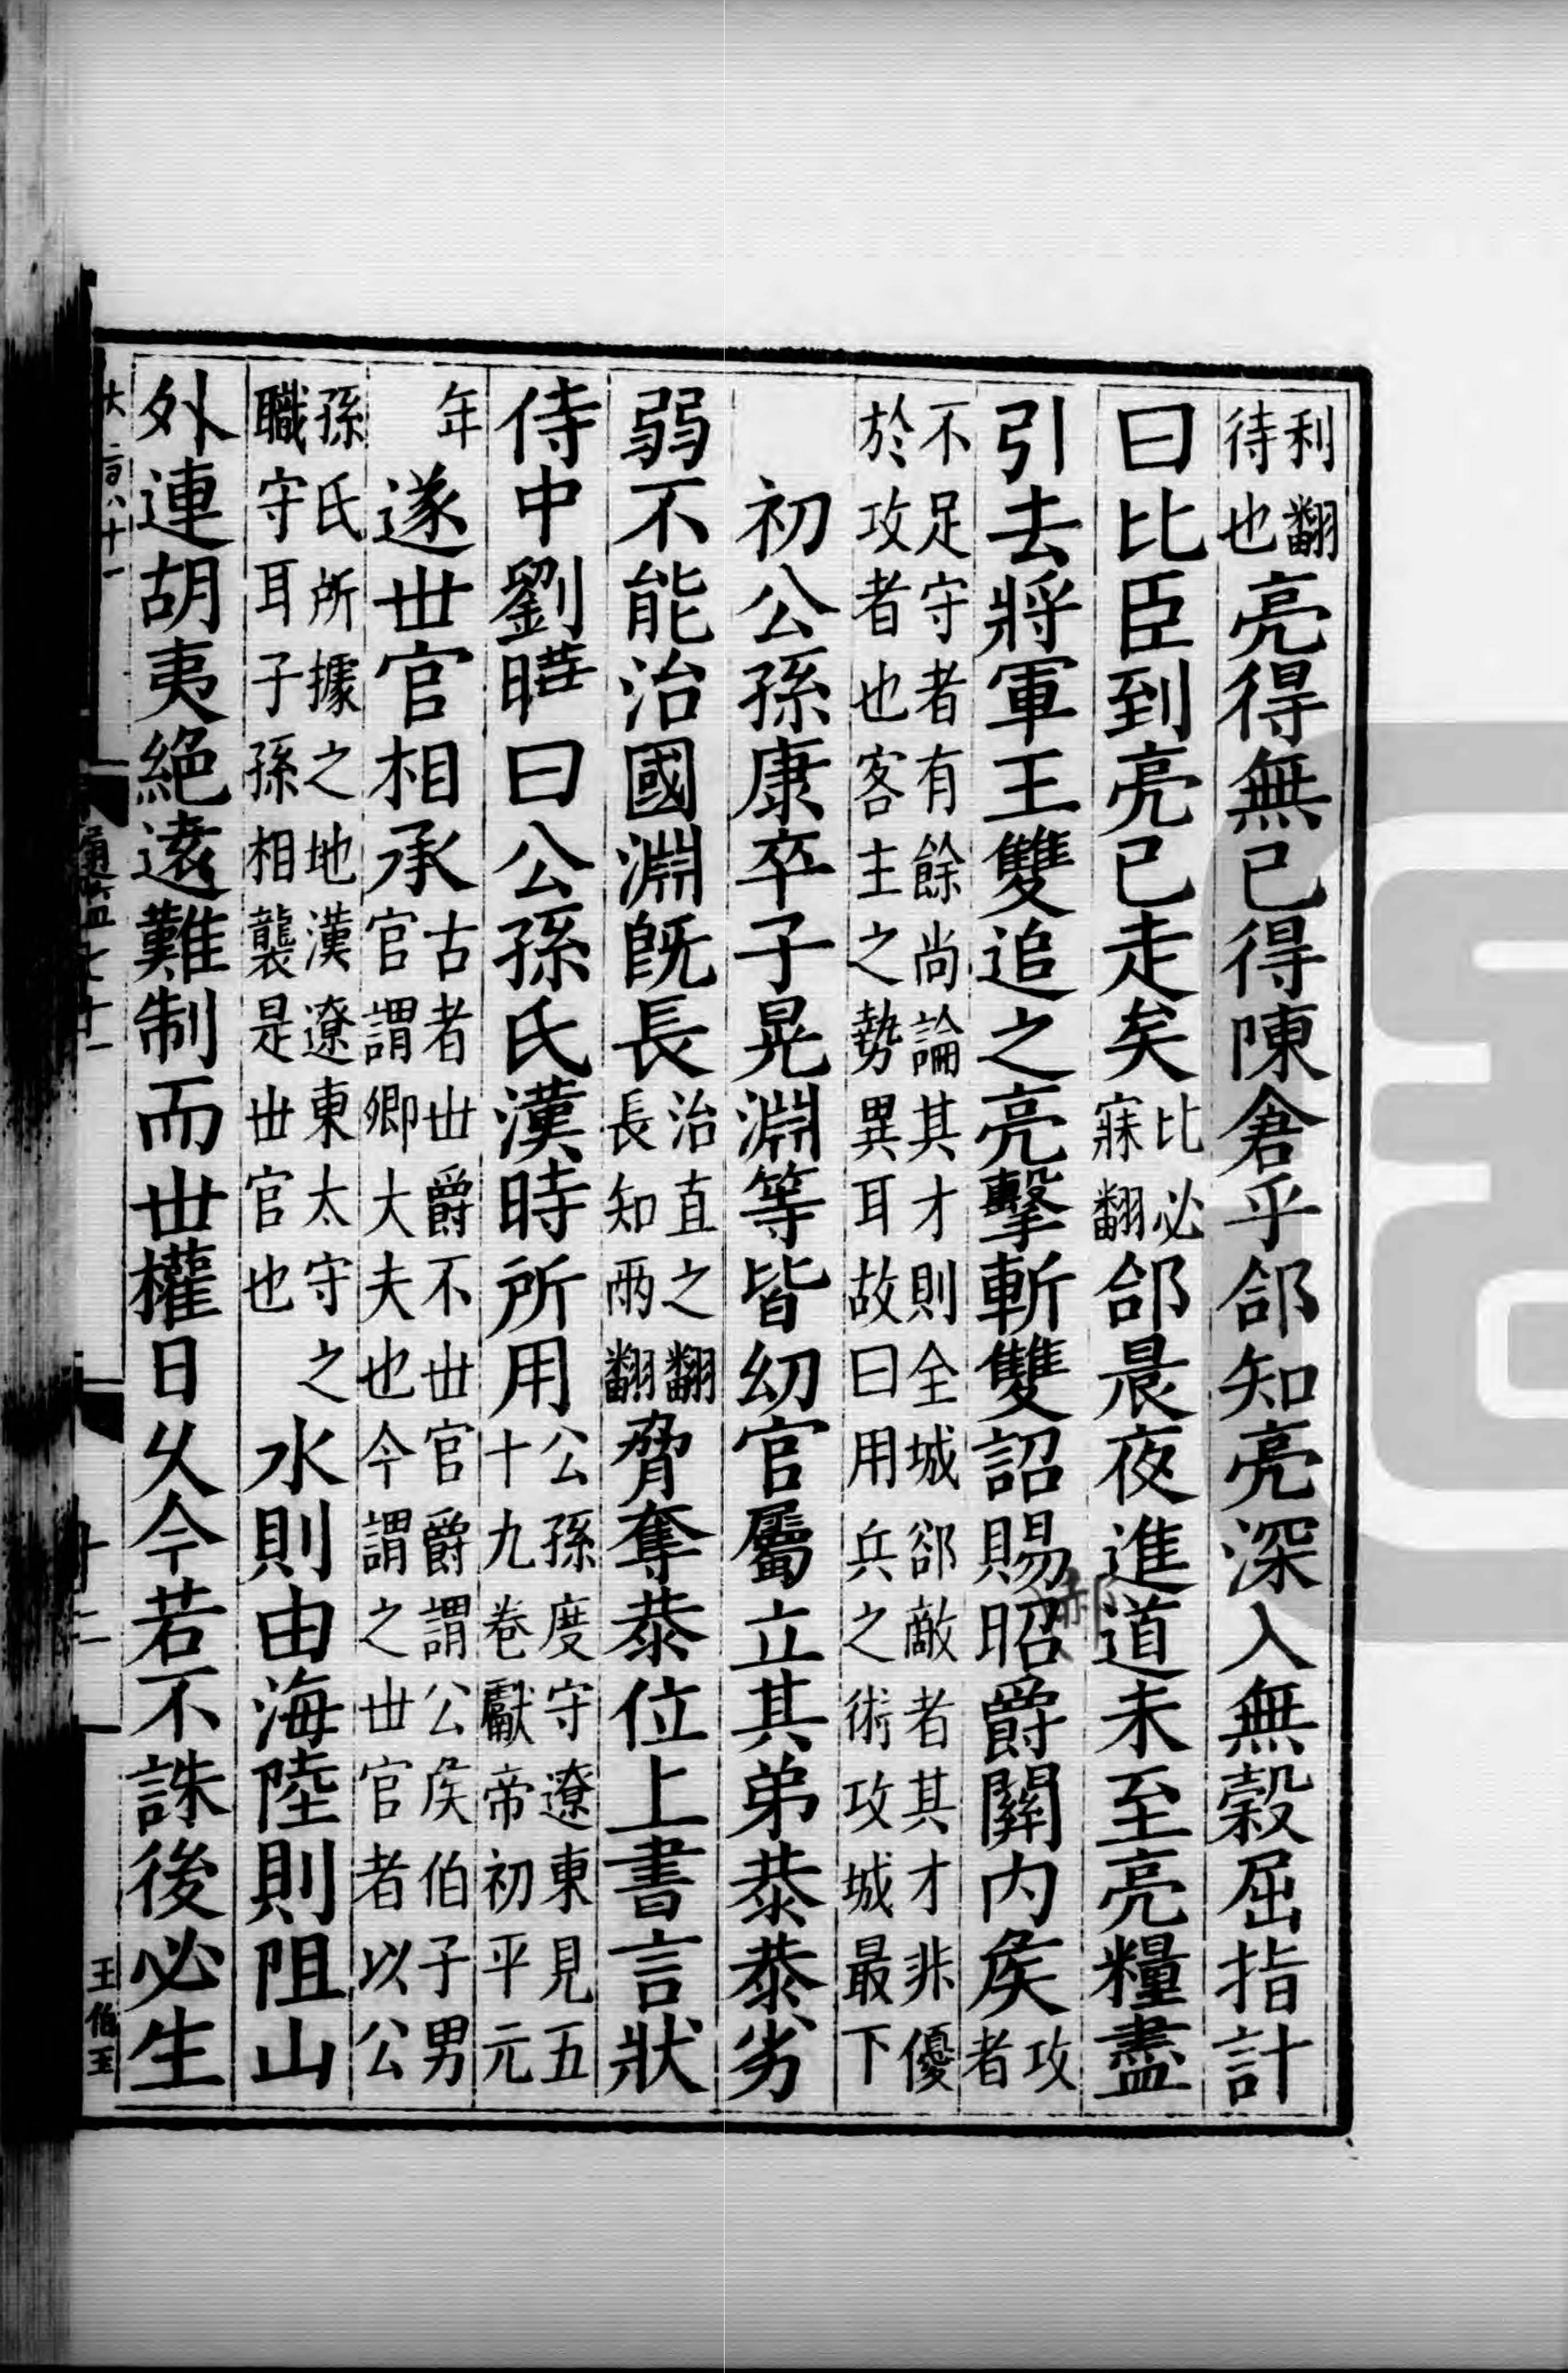 利翻待也亮得無已得陳倉乎郃知亮深入無穀屈指計
曰比臣到亮已走矣比必寐翻郃晨夜進道未至亮糧盡
引去將軍王雙追之亮擊斬雙詔賜昭爵關內侯攻者
不足守者有餘尚論其才則全城郤敵者其才非優於攻者也客主之勢異耳故曰用兵之術攻城最下
初公孫康卒子晃淵等皆幼官屬立其弟恭恭劣
弱不能治國淵旣長治直之翻長知兩翻脅奪恭位上書言狀
侍中劉曄曰公孫氏漢時所用公孫度守遼東見五十九卷獻帝初平元
年遂丗官相承古者丗爵不丗官爵謂公侯伯子男官謂卿大夫也今謂之丗官者以公
孫氏所據之地漢遼東太守之職守耳子孫相襲是丗官也水則由海陸則阻山
外連胡夷絕遠難制而丗權日久今若不誅後必生
通鑑七十一
王伯玉